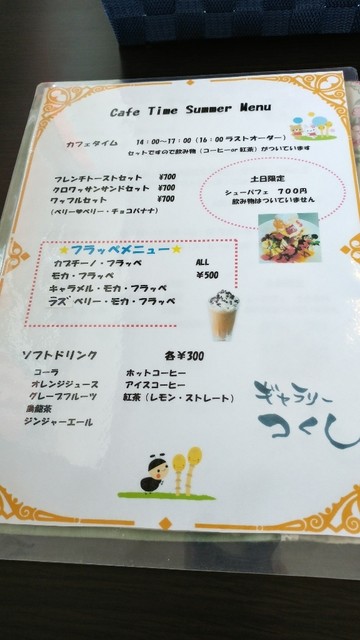 Cafe Time Summer Menu
カフェタイム　14：00～17：00（16：00 ラストオーダー）
セットですので飲み物（コーヒーor 紅茶）がついています
フレンチトーストセット　¥700
クロワッサンサンドセット　¥700
ワッフルセット　¥700
（ベリー♥ベリー・チョコバナナ）
土日限定
シューパフェ　700円
飲み物はついていません
★フラッペメニュー★
カプチーノ・フラッペ　ALL
モカ・フラッペ　¥500
キャラメル・モカ・フラッペ
ラズベリー・モカ・フラッペ
ソフトドリンク　各¥300
コーラ　ホットコーヒー
オレンジジュース　アイスコーヒー
グレープフルーツ　紅茶（レモン・ストレート）
烏龍茶
ジンジャーエール
ギャラリー
つくし